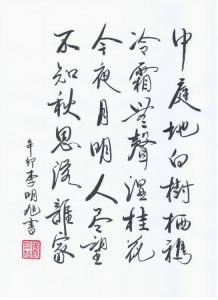 中庭地白樹栖鴉
冷露無聲湿桂花
今夜月明人尽望
不知秋思落誰家
辛卯李明旭書